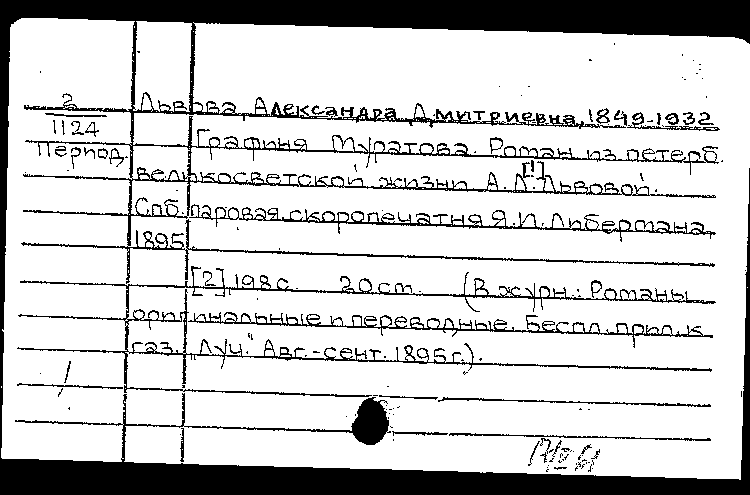 2
1124
Период.
Львова, Александра Дмитриевна, 1849-1932
Графиня Муратова. Роман из петерб.
великосветской жизни А. Л. [!] Львовой.
Спб. паровая скоропечатня Я.И. Либермана,
1895.
[2], 198 с. 20 см. (В журн.: Романы
оригинальные и переводные. Беспл. прил. к
газ. „Луч." Авг.-сент. 1895 г.).